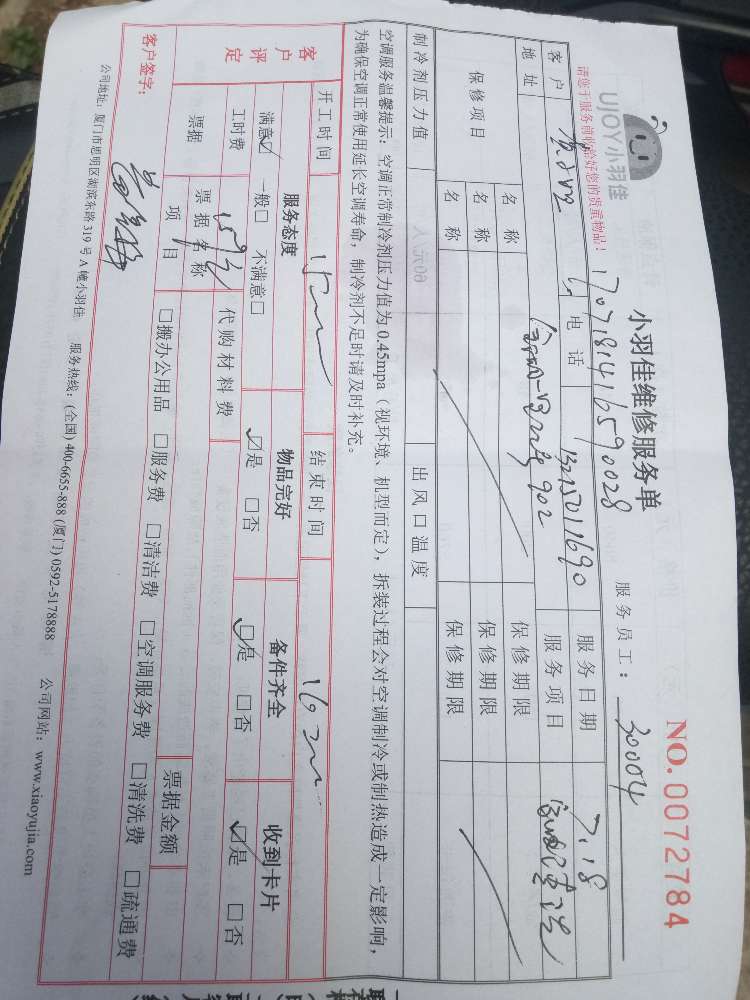 UJOY小羽佳
小羽佳维修服务单
NO.0072784
请您于服务前收拾好您的贵重物品！
1707181416590028
服务员工：30004
客户 电话 13215011690 服务日期 7.18
地址 902 服务项目
保修项目 名称 保修期限
名称 保修期限
名称 保修期限
制冷剂压力值 出风口温度
空调服务温馨提示：空调正常制冷剂压力值为0.45mpa（视环境、机型而定），拆装过程会对空调制冷或制热造成一定影响，
为确保空调正常使用延长空调寿命，制冷剂不足时请及时补充。
开工时间 结束时间
客户评定 服务态度 物品完好 备件齐全 收到卡片
满意☑ 一般□ 不满意□ ☑是 □否 ☑是 □否 ☑是 □否
工时费 代购材料费
票据 票据名称 票据金额
项目 □搬办公用品 □服务费 □清洁费 □空调服务费 □清洗费 □疏通费
客户签字：
公司地址：厦门市思明区湖滨东路319号A幢小羽佳 服务热线：(全国) 400-6655-888 (厦门) 0592-5178888 公司网站：www.xiaoyujia.com